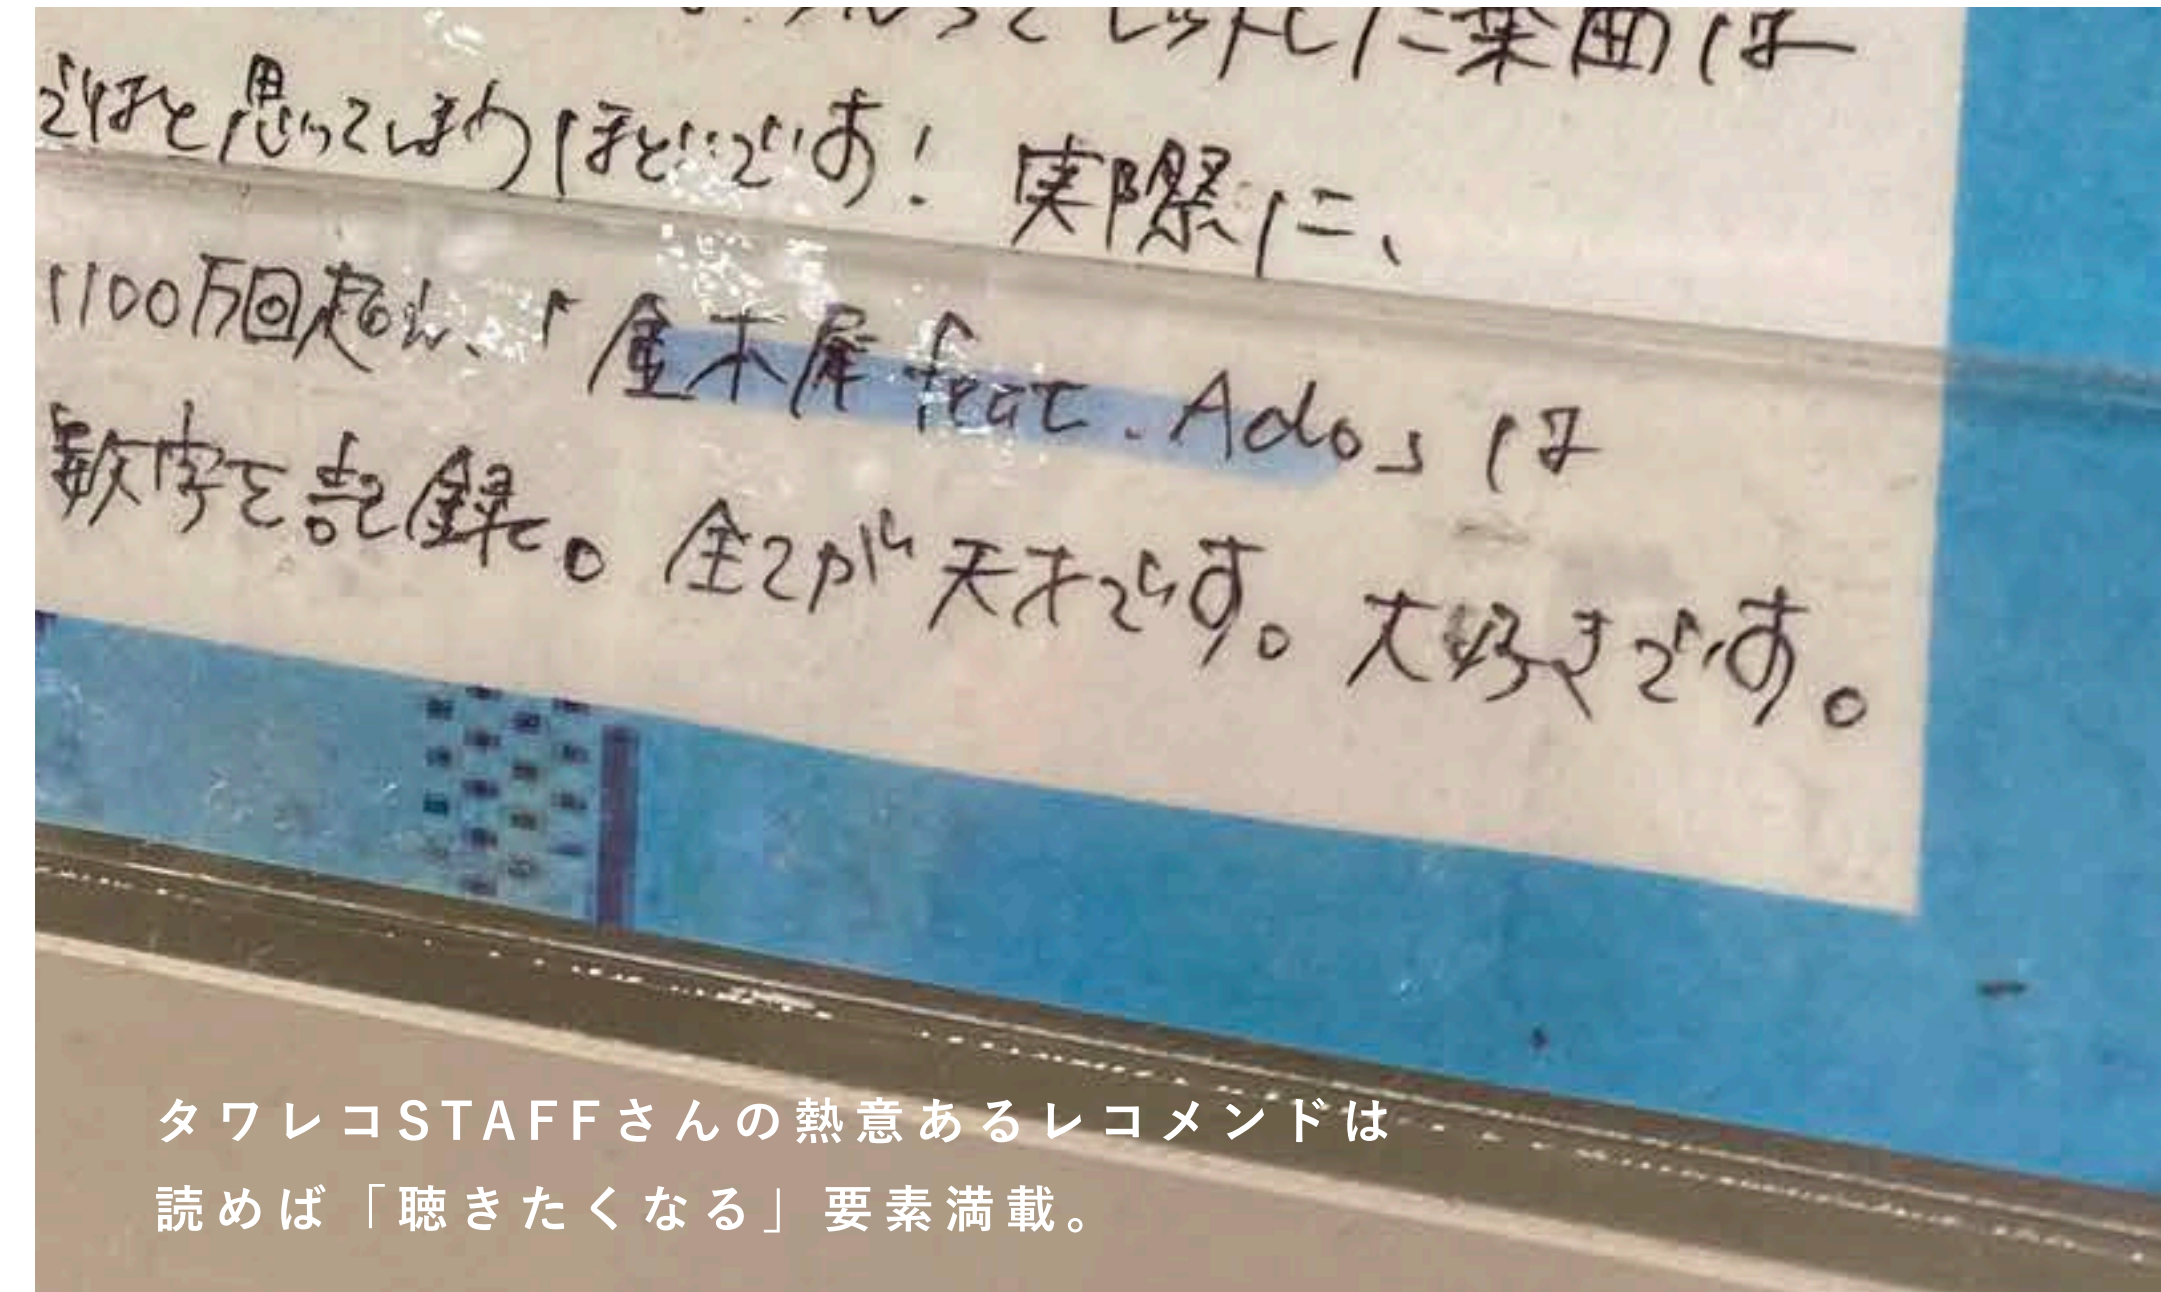 ヒットした楽曲は
ではと思ってしまうほどです! 実際に、
1100万回超え、「金木犀 feat. Ado」は
数字を記録。全てが天才です。大好きです。
タワレコSTAFFさんの熱意あるレコメンドは
読めば「聴きたくなる」要素満載。